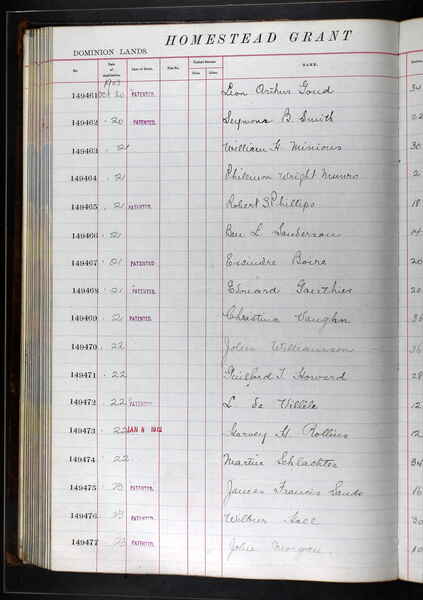 HOMESTEAD GRANT
DOMINION LANDS.
No. Date of Application. Date of Grant. File No. NAME.
149461 Oct 20 PATENTED. Leon Arthur Goud 34
149462 " 20 PATENTED. Seymour B. Smith 22
149463 " 21 William H. Minious 30
149464 " 21 Philemon Wright Munro 2
149465 " 21 PATENTED. Robert S. Phillips 18
149466 " 21 Ben L. Sanderson 14
149467 " 21 PATENTED 20
149468 " 21 PATENTED. Edward Gauthier 20
149469 " 21 PATENTED. Christina Vaughn 36
149470 " 22 Williamson 36
149471 " 22 Guilford T. Howard 28
149472 " 22 PATENTED L. de Villele 12
149473 " 22 JAN 8 1912 Harvey H. Rollins 12
149474 " 22 Martin Schlachter 34
149475 " 23 PATENTED. James Francis Sands 16
149476 " 23 PATENTED. 20
149477 " 23 PATENTED. 10